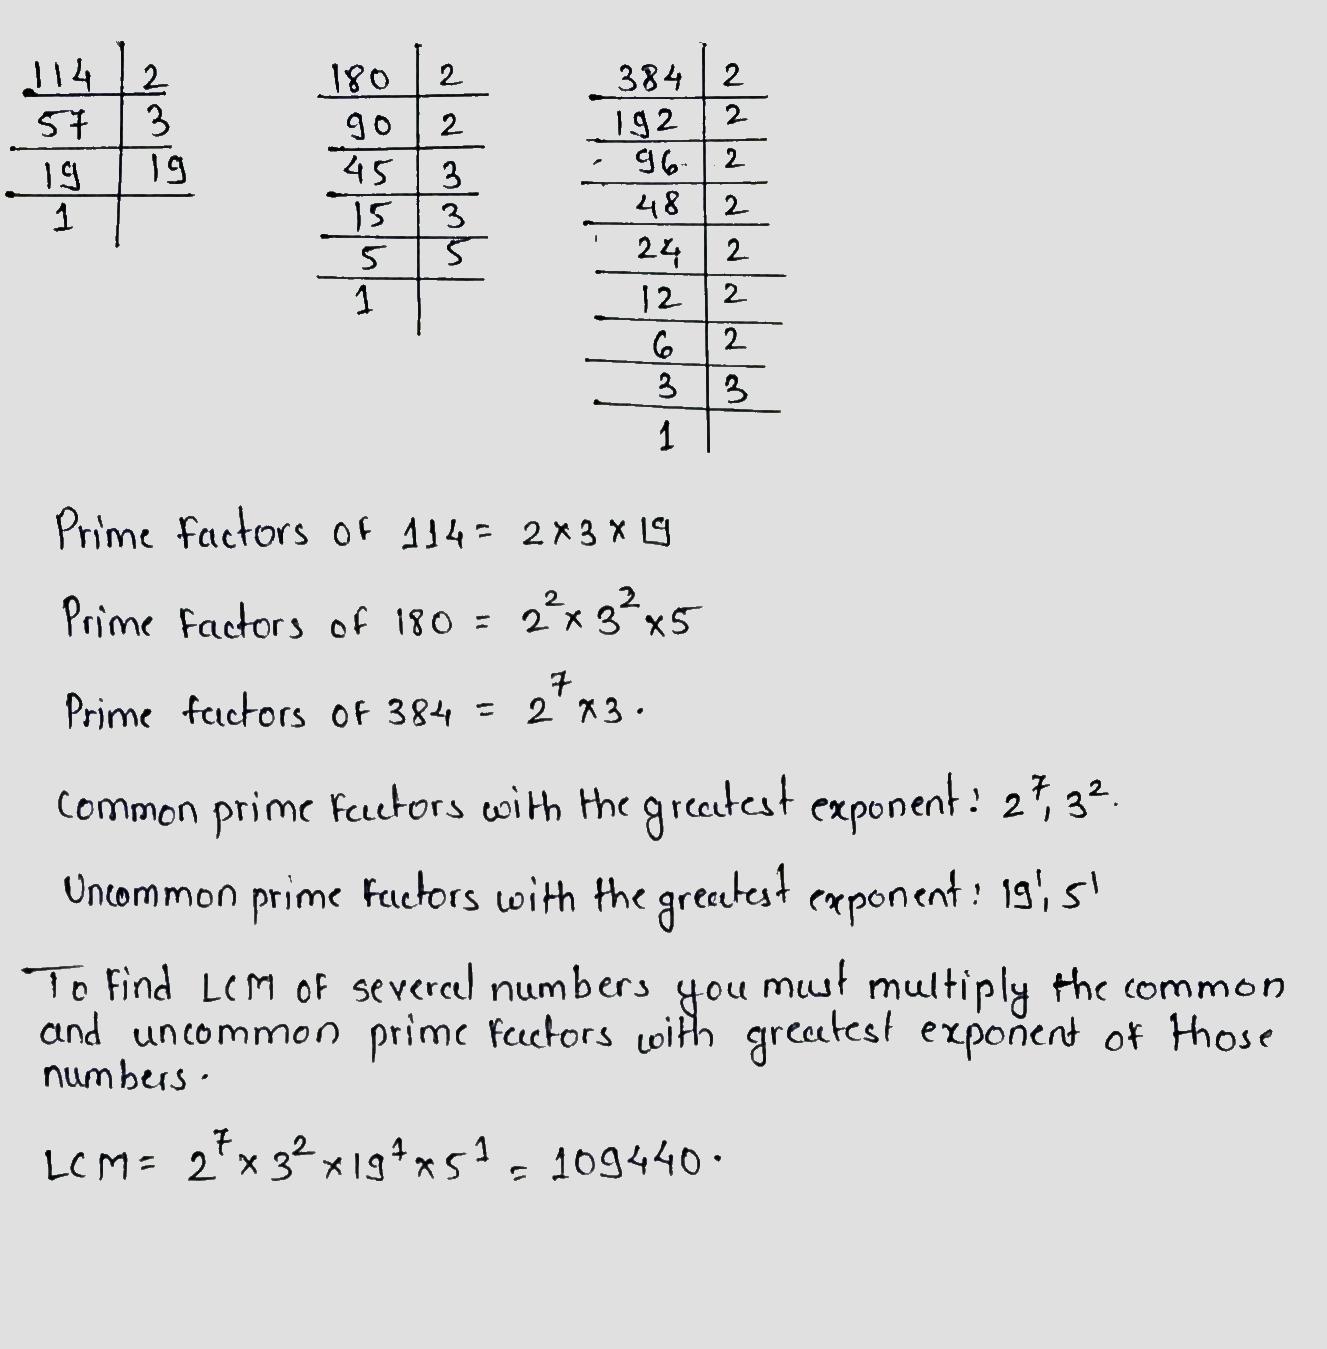 114 2
57 3
19 19
1
180 2
90 2
45 3
15 3
5 5
1
384 2
192 2
96 2
48 2
24 2
12 2
6 2
3 3
1
Prime factors of 114 = 2 × 3 × 19
Prime factors of 180 = 2² × 3² × 5
Prime factors of 384 = 2⁷ × 3.
Common prime factors with the greatest exponent: 2⁷, 3².
Uncommon prime factors with the greatest exponent: 19¹, 5¹
To find LCM of several numbers you must multiply the common
and uncommon prime factors with greatest exponent of those
numbers.
LCM = 2⁷ × 3² × 19¹ × 5¹ = 109440.